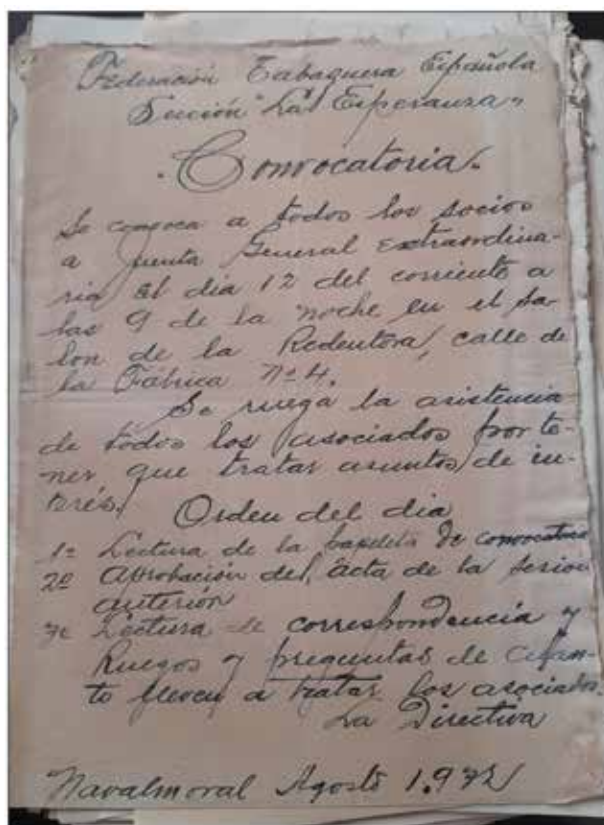 Federación Tabaquera Española
Sección "La Esperanza"
Convocatoria.
Se convoca a todos los socios
a junta General extraordina-
ria el dia 12 del corriente a
las 9 de la noche en el sa-
lon de la Redentora, calle de
la Fábrica nº 4.
Se ruega la asistencia
de todos los asociados por te-
ner que tratar asuntos de in-
terés.
Orden del dia
1º Lectura de la papeleta de convocatoria
2º Aprobación del acta de la sesion
anterión
3º Lectura de correspondencia y
Ruegos y preguntas de
to lleven a tratar los asociados.
La Directiva
Navalmoral Agosto 1.932